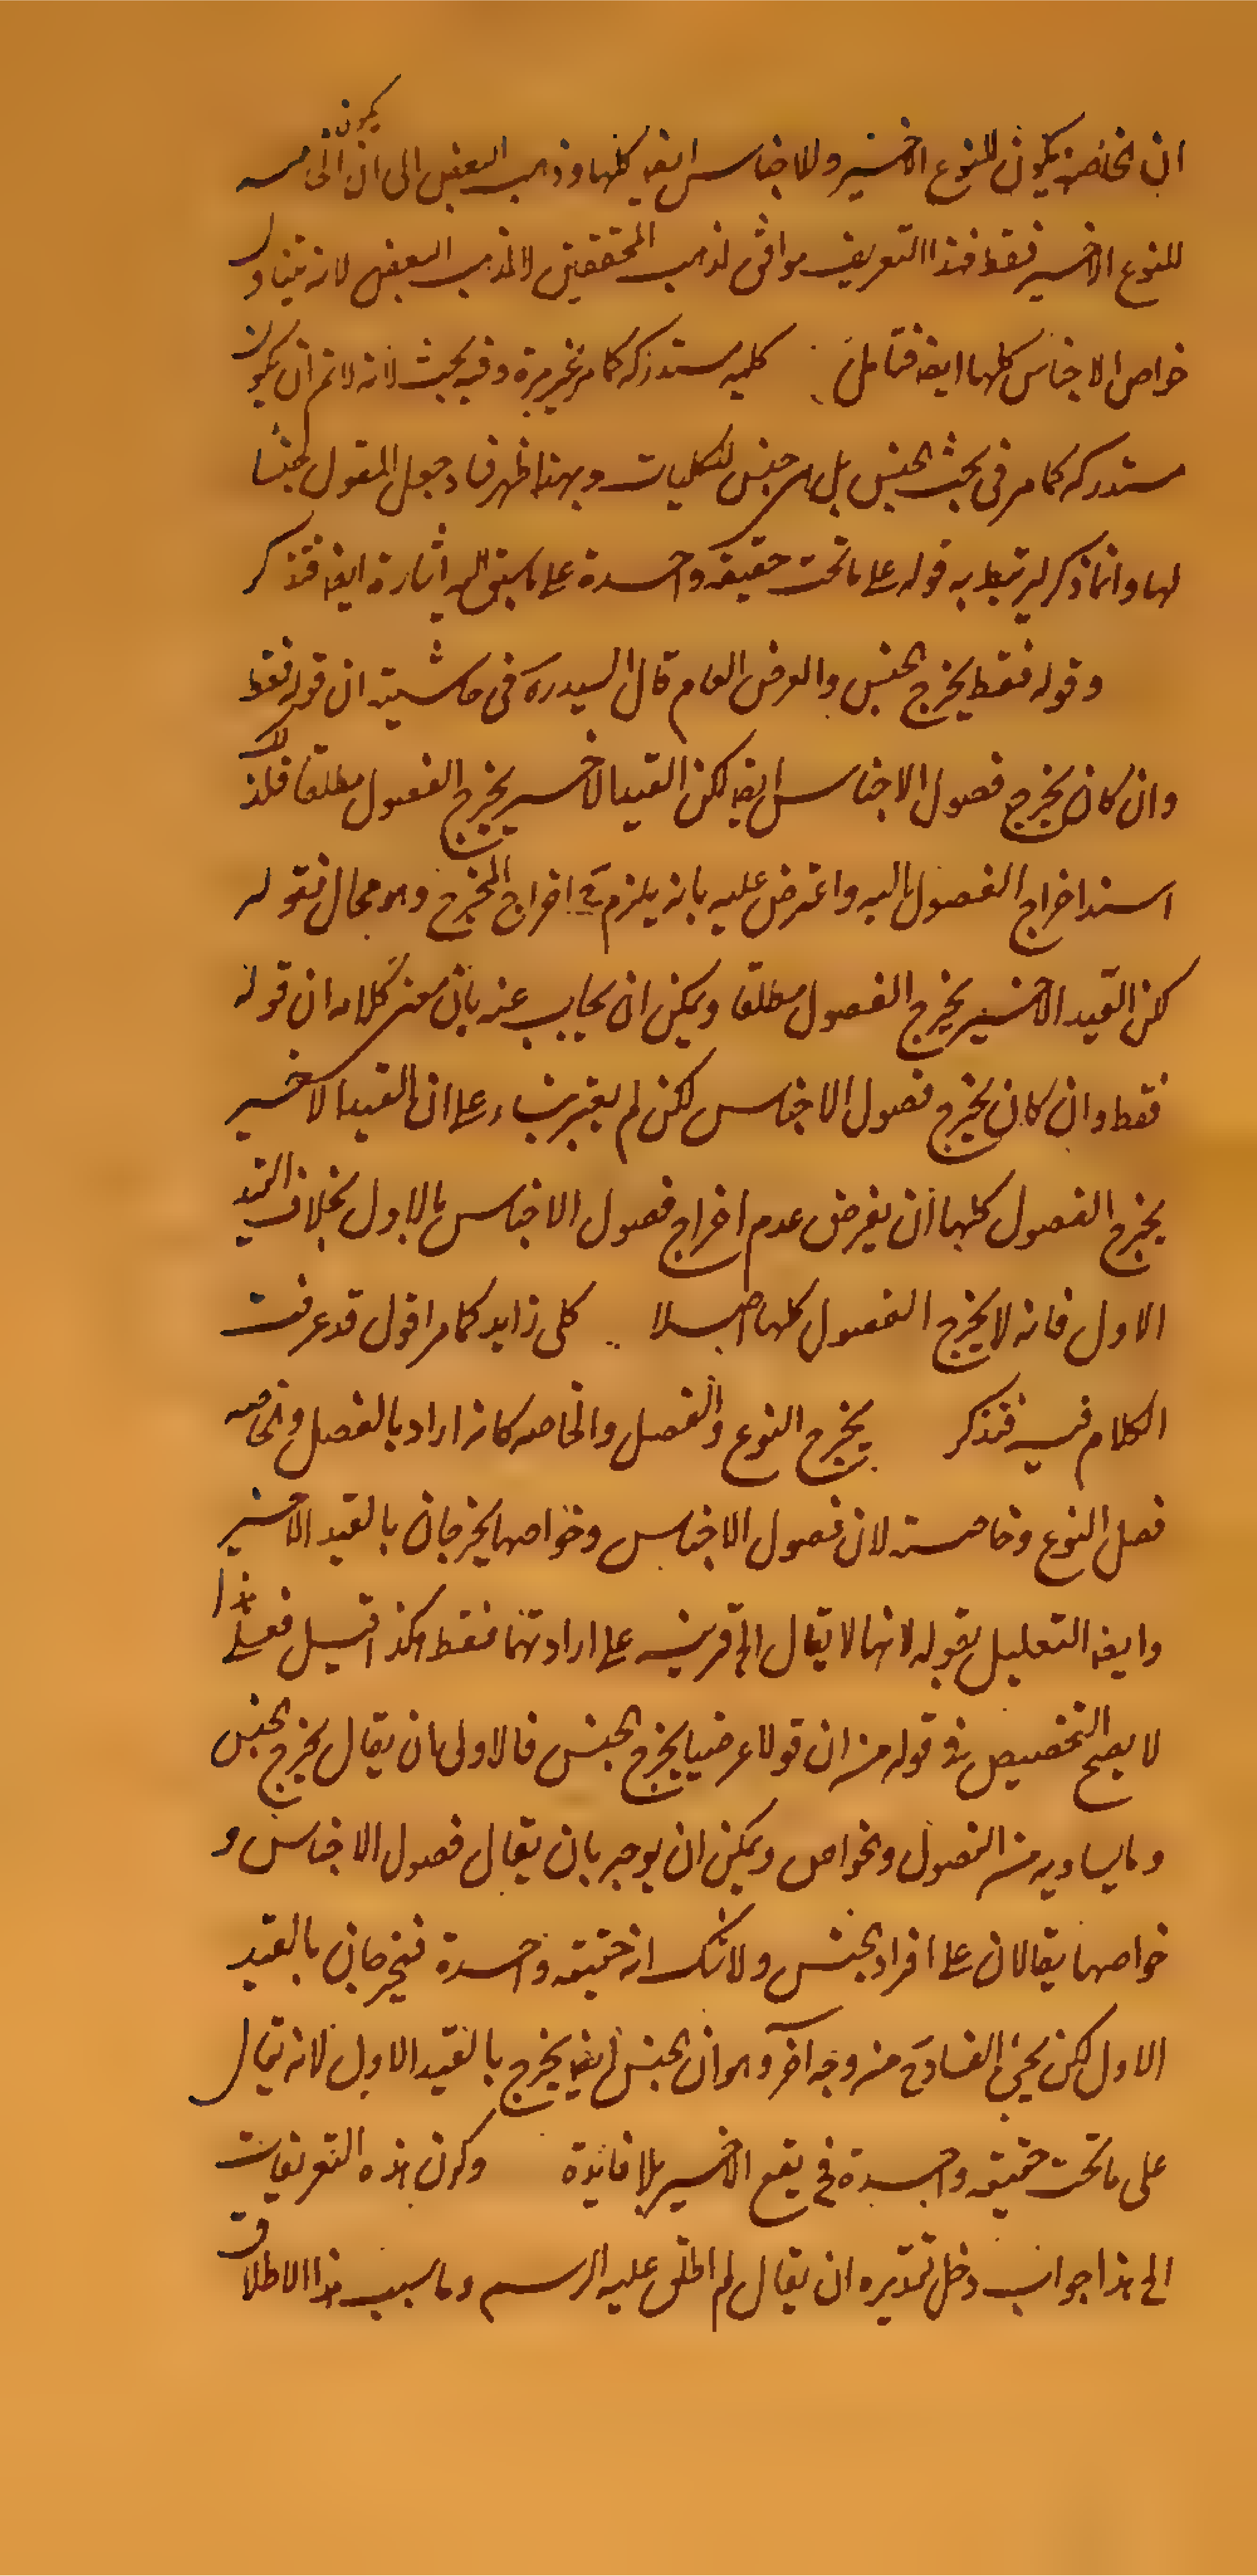 ان الخاصة يكون للنوع الاخير وللاجناس ايضا كلها وذهب البعض الى ان الخاصة يكون
للنوع الاخير فقط فهذا التعريف موافق لمذهب المحققين لا لمذهب البعض لانه يتناول
خواص الاجناس كلها ايضا فتامل كلية مستدركة كما مر غير مرة وفيه بحث لانه لا تم ان يكون
مستدركة كما مر فى بحث الجنس بل هى جنس للكليات وبهذا ظهر فساد جعل المقول جنسا
لها وانما ذكر ليرتبط به قوله على ما تحت حقيقة واحدة على ما سبق اليه اشارة ايضا فتذكر
وقوله فقط يخرج الجنس والعرض العام قال السيد ره فى حاشيته ان قوله فقط
وان كان يخرج فصول الاجناس ايضا لكن القيد الاخير يخرج الفصول مطلقا فلذلك
اسند اخراج الفصول اليه واعترض عليه بانه يلزم ح اخراج المخرج وهو محال فقوله
لكن القيد الاخير يخرج الفصول مطلقا ويمكن ان يجاب عنه بان معنى كلامه ان قوله
فقط وان كان يخرج فصول الاجناس لكن لم يعتبر بناء على ان القيد الاخير
يخرج الفصول كلها ان يفرض عدم اخراج فصول الاجناس بالاول بخلاف القيد
الاول فانه لا يخرج الفصول كلها اصلا كلى زايد كما مر اقول قد عرفت
الكلام فيه فتذكر يخرج النوع والفصل والخاصه كانه اراد بالفصل والخاصه
فصل النوع وخاصته لان فصول الاجناس وخواصها يخرجان بالقيد الاخير
وايضا التعليل بقوله لانها لا يقال الخ قرينة على ارادتهما فقط هكذا قيل فعلى هذا
لا يصح التخصيص فى قوله من ان قولا عرضيا يخرج الجنس فالاولى ان يقال يخرج الجنس
وما يساويه من الفصول والخواص ويمكن ان يوجه بان يقال فصول الاجناس و
خواصها يقالان على افراد الجنس ولا شك انه حقيقة واحدة فيخرجان بالقيد
الاول لكن يجئ الفساد ح من وجه آخر وهو ان الجنس ايضا يخرج بالقيد الاول لانه يقال
على ما تحت حقيقة واحدة فح يقع الاخير بلا فايدة وكون هذه التعريفات
الى هذا جواب دخل تقديره ان يقال لم اطلق عليه الرسم وما سبب هذا الاطلاق